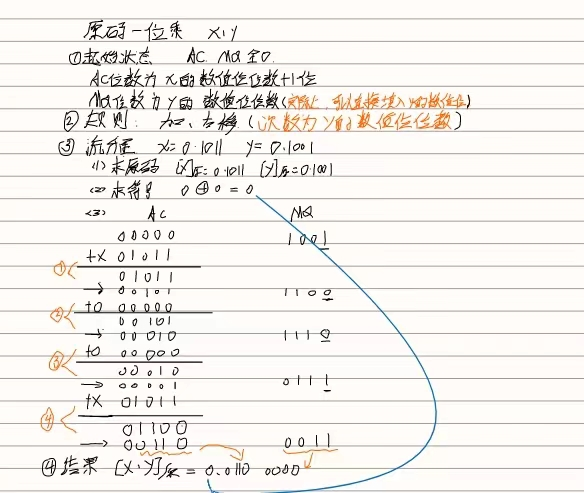 原码一位乘 x·y
①起始状态 AC MQ 全0.
AC位数为 x的数值位位数+1位
MQ位数为 y的 数值位位数(实际上, 可以直接填入 y的数值位)
②规则: 加, 右移 (次数为y的数值位位数)
③流程 x=0.1011 y=0.1001
(1) 求原码 [x]原=0.1011 [y]原=0.1001
(2) 求符号 0⊕0=0
(3) AC MQ
00000 1001
+x 01011
① 01011
→ 00101 1100
② +0 00000
00101
→ 00010 1110
③ +0 00000
00010
→ 00001 0111
④ +x 01011
01100
→ 00110 0011
④结果 [x·y]原 = 0.0110 0000